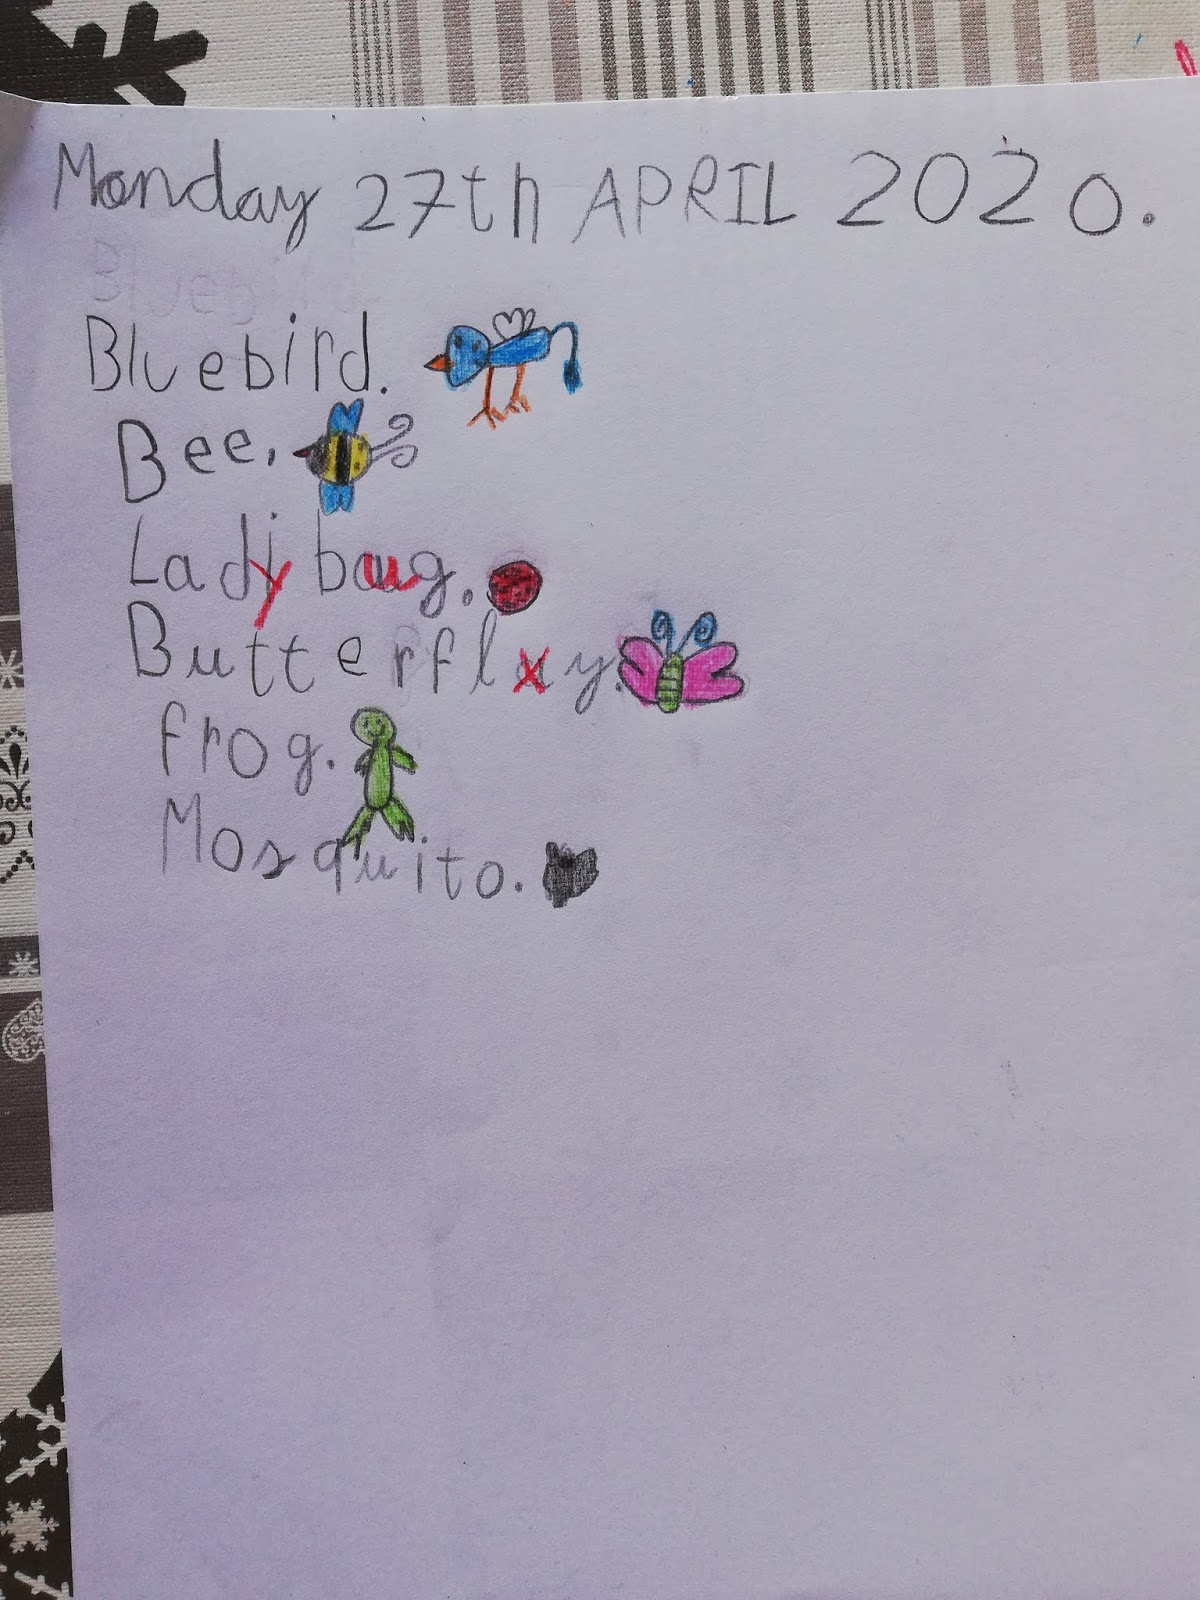 Monday 27th APRIL 2020.
Bluebird.
Bee.
Lady bug.
Butterflxy.
frog.
Mosquito.